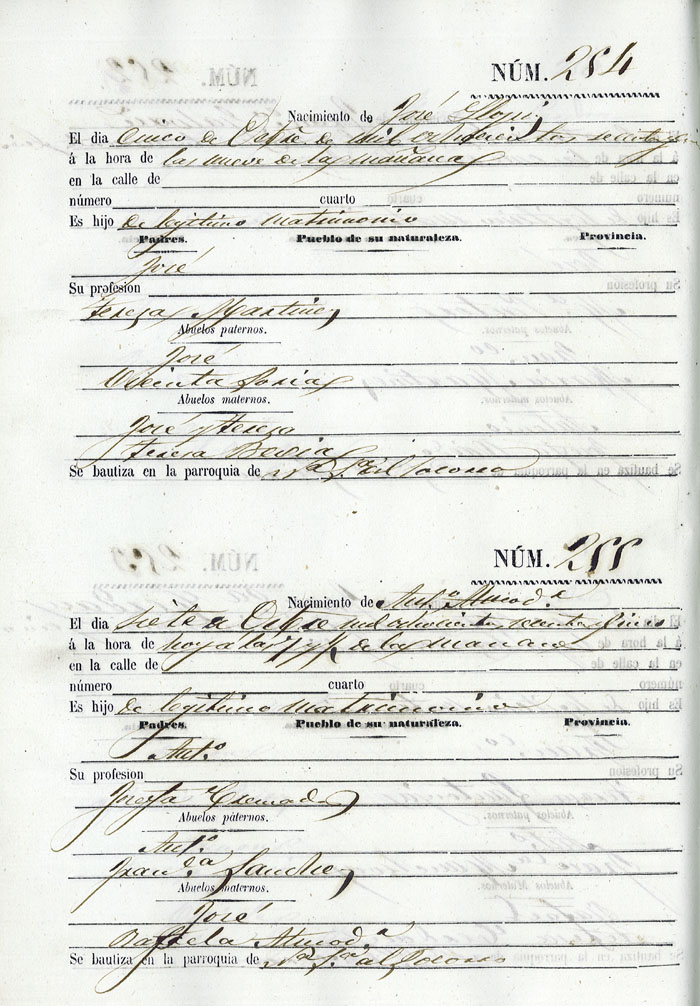 NÚM. 254
Nacimiento de José Llopis
El dia cinco de Octbre de mil ochocientos sesenta y cinco
á la hora de las nueve de la mañana
en la calle de
número cuarto
Es hijo de legitimo matrimonio
Padres. Pueblo de su naturaleza. Provincia.
José
Su profesion
Teresa Martinez
Abuelos paternos.
José
Vicenta Soria
Abuelos maternos.
José y Teresa
Teresa
Se bautiza en la parroquia de Nª Sª del Socorro
NÚM. 255
Nacimiento de Antº Almodª
El dia siete de Octbre mil ochocientos sesenta y cinco
á la hora de hoy á las 7 y ½ de la mañana
en la calle de
número cuarto
Es hijo de legitimo matrimonio
Padres. Pueblo de su naturaleza. Provincia.
Antº
Su profesion
Josefa Cremades
Abuelos paternos.
Antº
Francª Sanchez
Abuelos maternos.
José
Rafaela Almodª
Se bautiza en la parroquia de Nª Sª del Socorro